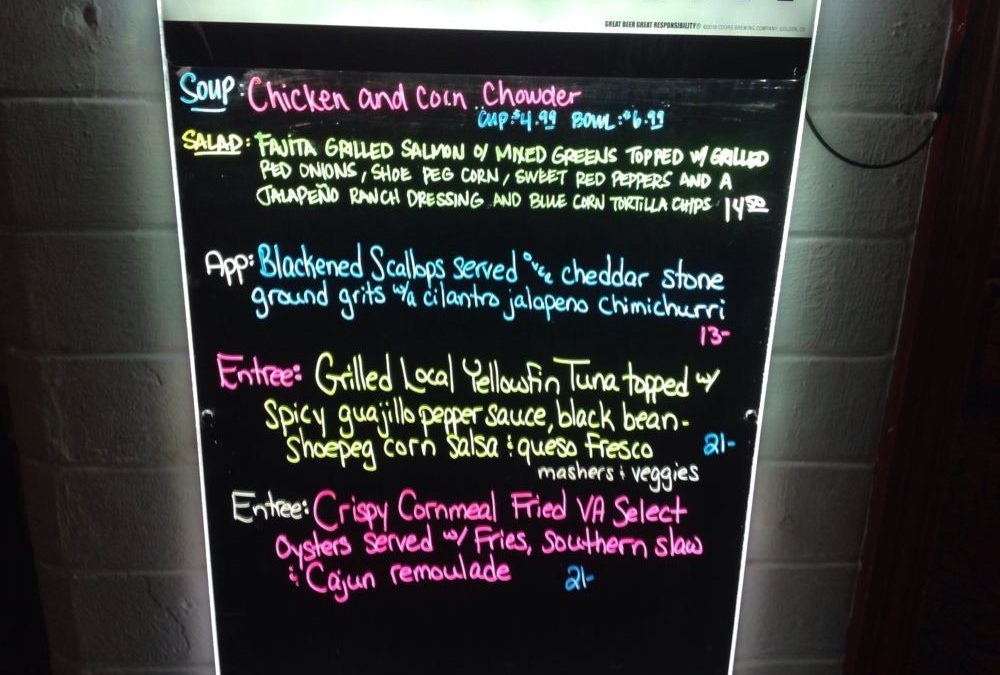 GREAT BEER GREAT RESPONSIBILITY® ©2010 COORS BREWING COMPANY, GOLDEN, CO
Soup: Chicken and Corn Chowder
CUP: $4.99 BOWL: $6.99
SALAD: FAJITA GRILLED SALMON O/ MIXED GREENS TOPPED W/ GRILLED
RED ONIONS, SHOE PEG CORN, SWEET RED PEPPERS AND A
JALAPEÑO RANCH DRESSING AND BLUE CORN TORTILLA CHIPS 14.50
App: Blackened Scallops served over cheddar stone
ground grits w/a cilantro jalapeno chimichurri
13-
Entree: Grilled Local Yellowfin Tuna topped w/
Spicy guajillo pepper sauce, black bean-
Shoepeg corn salsa & queso Fresco 21-
mashers & veggies
Entree: Crispy Cornmeal Fried VA Select
Oysters served w/ Fries, southern slaw
& Cajun remoulade 21-